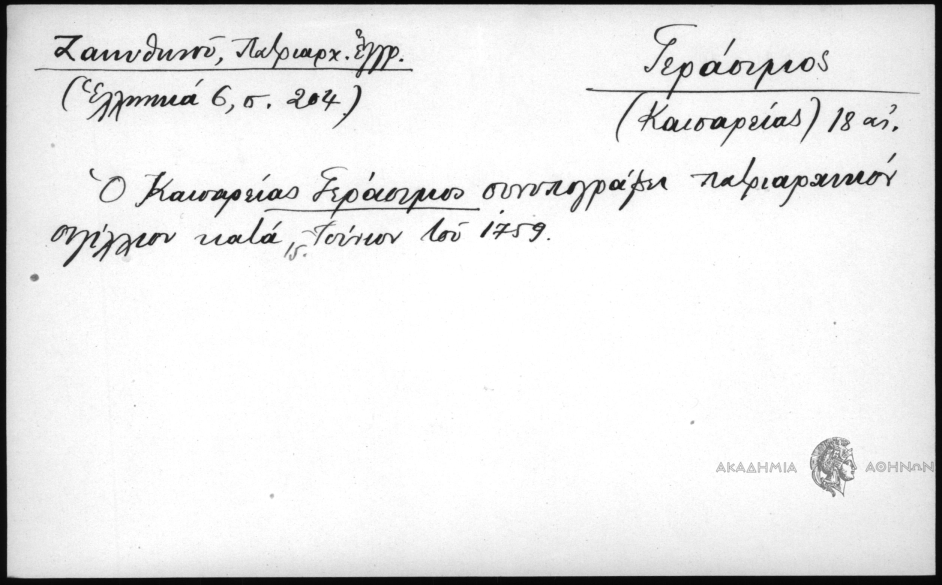 Ζακυθηνοῦ, Πατριαρχ. ἔγγρ.
(Ἑλληνικά 6, σ. 204)
Γεράσιμος
(Καισαρείας) 18 αἰ.
Ὁ Καισαρείας Γεράσιμος συνυπογράφει πατριαρχικόν
σιγίλλιον κατά 15. Ἰούνιον τοῦ 1759.
ΑΚΑΔΗΜΙΑ ΑΘΗΝΩΝ